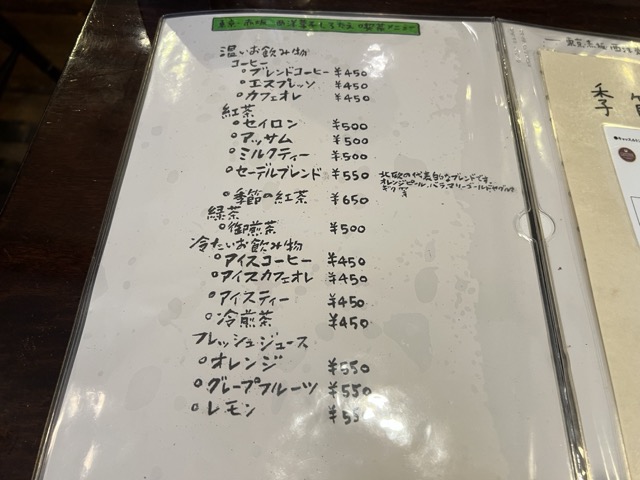 東京・赤坂 西洋菓子しろたえ 喫茶メニュー
温いお飲み物
コーヒー
ブレンドコーヒー ¥450
エスプレッソ ¥450
カフェオレ ¥450
紅茶
セイロン ¥500
アッサム ¥500
ミルクティー ¥500
セーデルブレンド ¥550
北欧の代表的なブレンドです。
オレンジピール、バラ、マリーゴールド
季節の紅茶 ¥650
緑茶
御煎茶 ¥500
冷たいお飲み物
アイスコーヒー ¥450
アイスカフェオレ ¥450
アイスティー ¥450
冷煎茶 ¥450
フレッシュジュース
オレンジ ¥550
グレープフルーツ ¥550
レモン ¥55
東京赤坂 西洋
季節